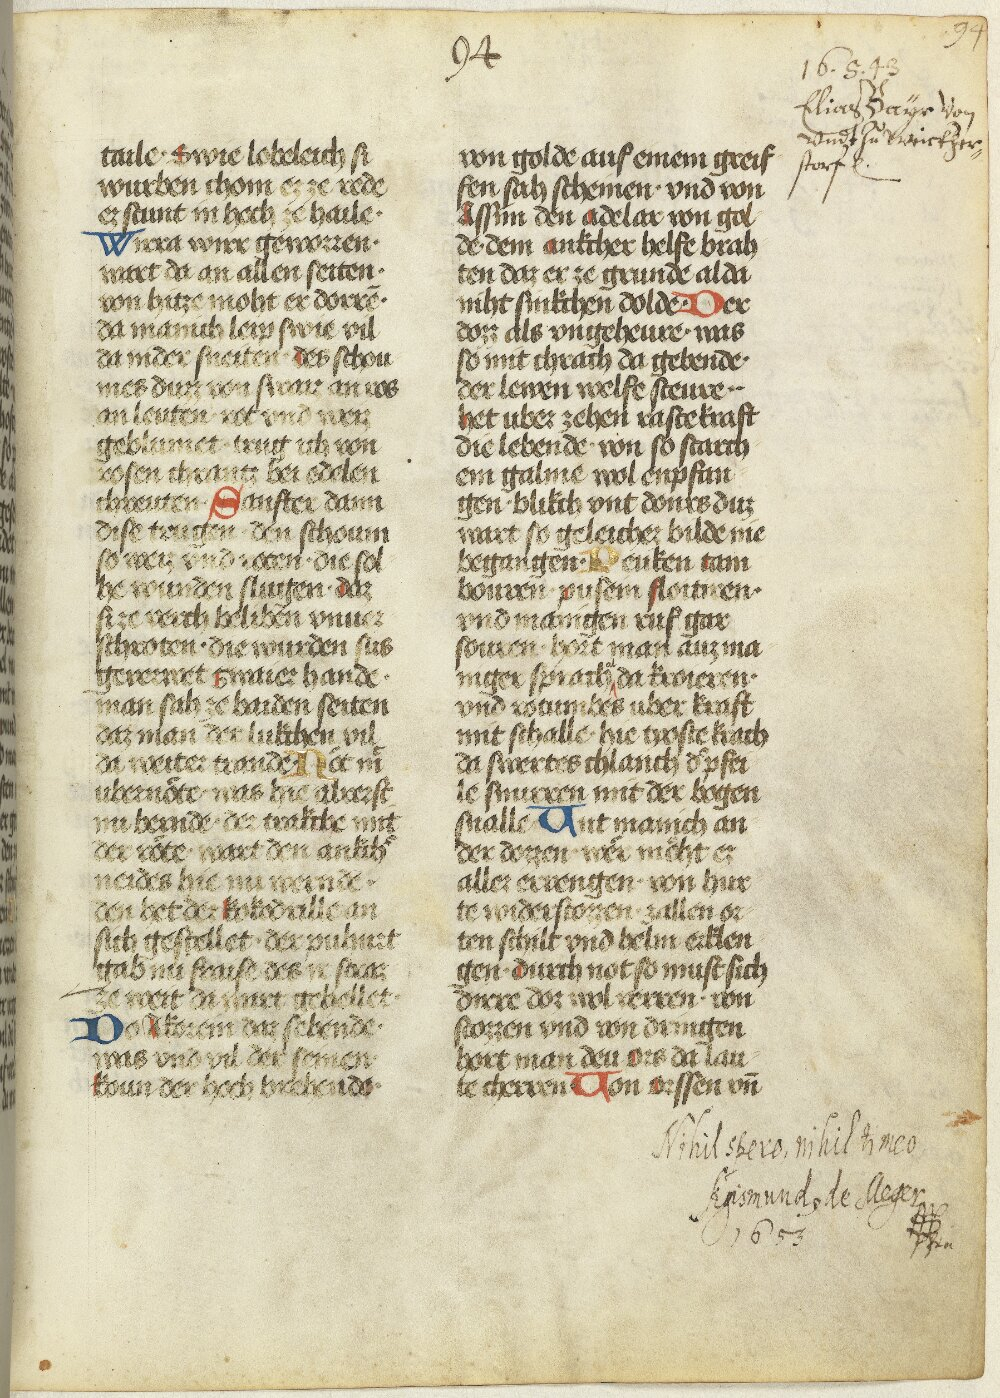 94
94
16.S.43
Elias Bayr von
vnd zu
storf
taile · Swie lobeleich si
wurben chom er ze rede
er stunt in hoch ze haile ·
Wirra wirr geworren ·
wart da an allen seiten ·
von hitze moht er dorrē ·
da manich leip swie vil
da inder sneiten · des schou
mes durz von swaiz an ros
an leuten · rot vnd weiz
geblumet · trug ich von
rosen chrantz bei edelen
chreuten · Sanfter dann
dise trugen · den schoum
so weiz vnd roten · die sol
he wunden slugen · daz
si ze verch beliben vnuer
schroten · die wurden sus
geverwet zwaier hande ·
man sah ze baiden seiten
daz man der lukchen vil
da weiter trande · Not mī
vbernôte · was hie alrerst
nu bernde · der trakche mit
der rôte · wart den ankch
neides hie nu wernde ·
den het der kokodrille an
sich gestellet · der puhurt
gab nu srause des ir
ze weit da wart gehellet ·
Do Akorein daz sehende ·
was vnd vil der seinen ·
koun der hoch brehende ·
von golde auf einem greif
fen sah scheinen · vnd von
Assim den adelar von gol
de · dem ankcher helfe brah
ten daz er ze grunde alda
niht sinkchen dolde · Der
dorz als vngeheure · was
so mit chrach da gebende ·
der lewen welfe steure ·
het vber zehen raste kraft
die lebende · von so starch
em galme wol enpfan
gen · blikch vnt donrs duz
wart so geleicher bilde nie
begangen · Peuken tam
bouren · pusem floitiren ·
vnd manigen ruf gar
souren · hort man auz ma
niger sprach da kroieren ·
vnd rotumbes vber kraft
mit schalle · hie troste krach
da swertes chlanch d pfei
le snurren mit der bogen
snalle · Vnt manich an
der dozzen · wer môht er
aller errengen · von hur
te widerstozzen · zallen or
ten schilt vnd helm erklen
gen · durch not so must sich
dicke dor wol verren · von
stozzen vnd von dringen
hort man deu ors da lau
te cherren · Von orssen vn̄
Nihil spero, nihil timeo
Sigismund, de Aeger
1653